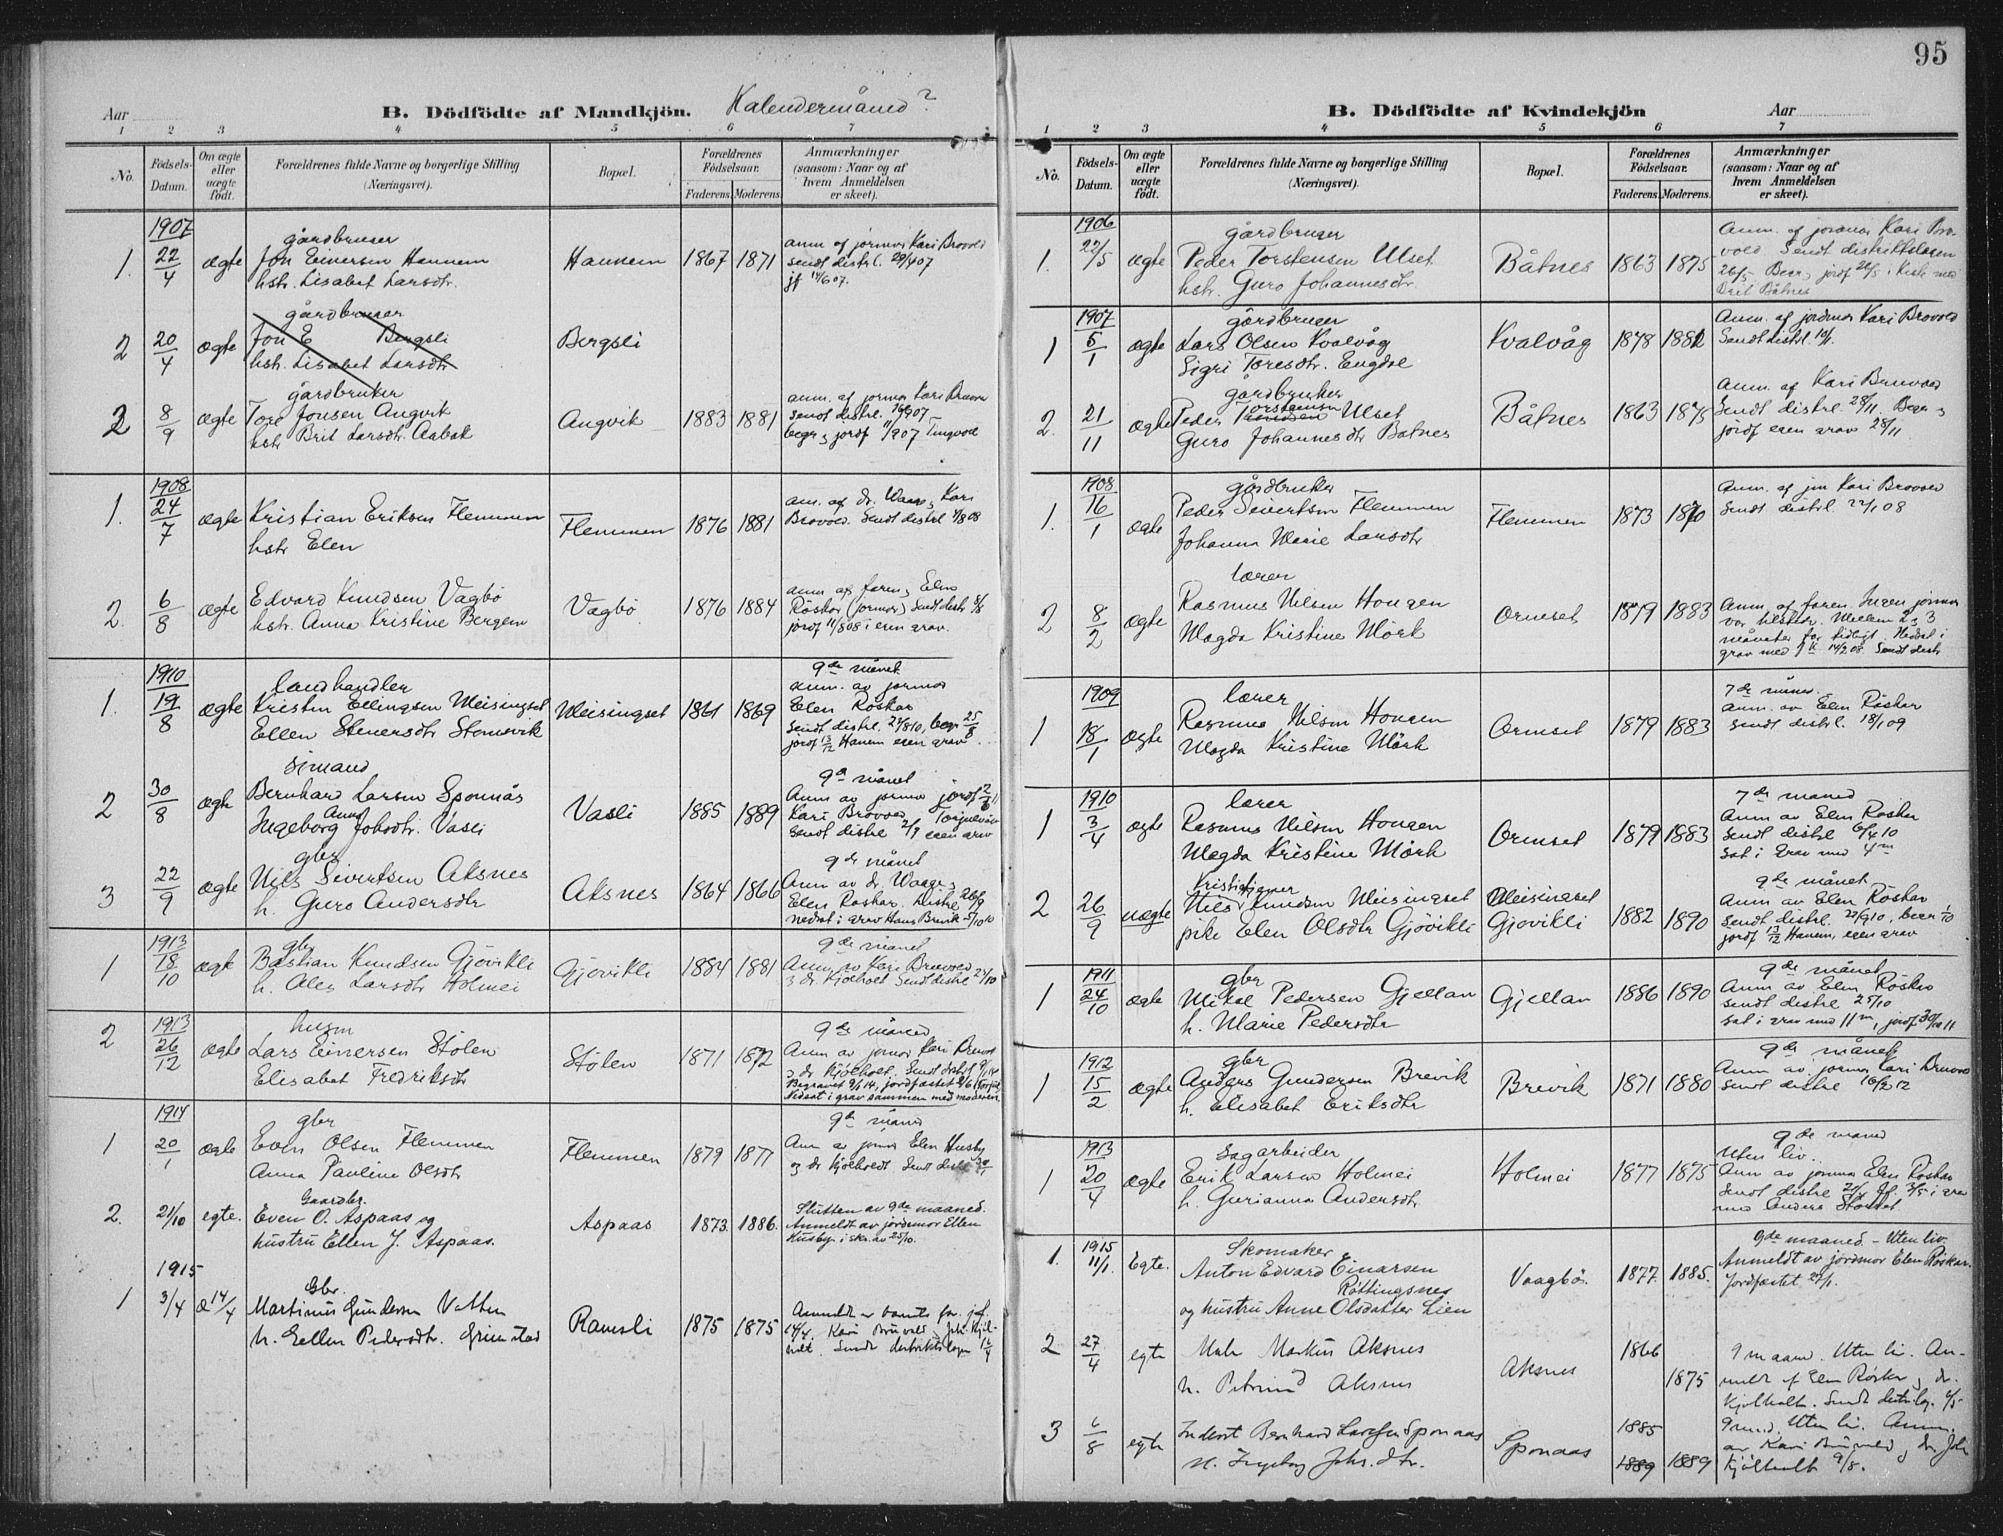 Aar
B. Dödfödte af Mandkjön. Kalendermåned?
1 2 3 4 5 6 7
No.
Födsels-Datum.
Om ægte eller uægte födt.
Forældrenes fulde Navne og borgerlige Stilling
(Næringsvei).
Bopæl.
Forældrenes Födselsaar.
Faderens. Moderens.
Anmærkninger
(saasom: Naar og af
hvem Anmeldelsen
er skeet).
1907
gårdbruger
1. 22/4 ægte Jon Einersen Hannem Hannem 1867 1871 anm af jormor Kari Brovold
hstr. Lisabet Larsdtr. Sendt distrl. 29/4 07
jf 14/6 07.
gårdbruger
2 20/4 ægte Jon E Bergsli Bergsli
hstr. Lisabet Larsdtr
gårdbruker
2 8/9 ægte Tore Jonsen Angvik Angvik 1883 1881 anm. af jormor Kari Bruvold
hstr Brit Larsdtr. Aabak Sendt distrl.
begr og jordf 11/9 07 Tingvold
1908
1. 24/7 ægte Kristian Eriksen Flemmen Flemmen 1876 1881 anm. af dr. Waage, Kari
hstr Elen Brovold. Sendt distrl
2. 6/8 ægte Edvard Knudsen Vågbø Vågbø 1876 1884 anm af faren, Elen
hstr. Anna Kristine Bergem Röskar (jormor) Sendt distr
jordf 11/8 08 i egen grav.
1910
landhandler 9de månet
1. 19/8 ægte Kristen Ellingsen Meisingset Meisingset 1861 1869 anm. av jormor
Ellen Stenersdtr Stomsvik Elen Röskar
Sendt distrl. begr 25/8
jordf 13/12 Hanem egen grav
simand 9de månet
2 30/8 ægte Bernhard Larsen Sponnås Vasli 1885 1889 Anm av jormor
Ingeborg Anna Johsdtr. Vasli Kari Brovold
Sendt distrl 2/9 egen grav
gbr 9de månet
3 22/9 ægte Nils Sivertsen Aksnes Aksnes 1864 1866 Anm av dr. Waage,
h. Guro Andersdtr Elen Röskar. Distrl 26/9
nedsat i grav Hans Brevik 5/10 10
1913
gbr 9de månet
1 18/10 ægte Bastian Knudsen Gjövikli Gjövikli 1884 1881 Anm av Kari Bruvold
h. Ales Larsdtr Holmei og dr. Kjölholt Sendt distrl 23/10
1913
husm 9de måned
2 26/12 ægte Lars Einersen Stölen Stölen 1871 1872 Anm av jormor Kari Bruvold
Elisabet Fredriksdtr og dr Kjölholt. Sendt distrl
Begravet 9/1 14, jordfæstet
Nedsat i grav sammen med moderen
1914
gbr 9de måned
1 20/1 ægte Even Olsen Flemmen Flemmen 1879 1877 Anm av jormor Elen Husby
Anna Pauline Olsdtr og dr Kjölholt Sendt distrl
Gaardbr.
2. 21/10 egte. Even O. Aspaas og Aspaas 1873. 1886. Slutten av 9de maaned.
hustru Ellen J. Aspaas. Anmeldt av jordemor Ellen
Husby i skr. av 25/10.
1915
Gbr.
1 3/4 Martinus Gundersen Vatten Ramsli 1875 1875 Anmeldt
h. Eellen Pedersdtr. Grimstad 14/4. Kari Bruvold
Sendt distriktslægen
95
B. Dödfödte af Kvindekjön Aar
1 2 3 4 5 6 7
No.
Födsels-Datum.
Om ægte eller uægte födt.
Forældrenes fulde Navne og borgerlige Stilling
(Næringsvei).
Bopæl.
Forældrenes Födselsaar.
Faderens. Moderens.
Anmærkninger
(saasom: Naar og af
hvem Anmeldelsen
er skeet).
1906
gårdbruger Anm. af jordmor Kari Bro-
1. 22/5 ægte Peder Torstensen Ulset Båtnes 1863 1875 vold Sendt distriktslægen
hstr. Guro Johannesdtr. 26/5 Begr. og jordf 26/5 i kiste med
Brit Båtnes
1907
gårdbruger Anm. af jordmor Kari Brovold
1 5/1 ægte Lars Olsen Kvalvåg Kvalvåg 1878 1882 Sendt distrl 10/1.
Sigri Toresdtr. Engdal
gårdbruker anm. af Kari Bruvold
2. 21/11 ægte Peder Torstensen Ulset Båtnes 1863 1875 Sendt distrl. 28/11. Begr og
Guro Johannesdtr Båtnes jordf egen grav 28/11
1908
gårdbruker Anm. af jm Kari Brovold
1. 16/1 ægte Peder Sivertsen Flemmen Flemmen 1873 1870 Sendt distrl. 22/1 08
Johanna Marie Larsdtr
lærer
2 8/2 ægte Rasmus Nilsen Hougen Ormset 1879 1883 Anm. af faren. Ingen jormor
Magda Kristine Mörk var tilstede. Mellem 2 og 3
måneter for tidligt. Nedsat i
grav med Sendt distr
1909
lærer 7de måned
1 18/1 ægte Rasmus Nilsen Hougen Ormset 1879 1883 Anm. av Elen Röskar
Magda Kristine Mörk Sendt distrl. 18/1 09
1910
lærer 7de måned
1 3/4 ægte Rasmus Nilsen Hougen Ormset 1879 1883 Anm av Elen Röskar
Magda Kristine Mörk Sendt distrl 6/4 10
sat i grav med 4 m
Kristi 9de månet
2 26/9 uægte Nils Knudsen Meisingset Meisingset 1882 1890 Anm av Elen Röskar
pike Elen Olsdtr Gjövikli Gjövikli Sendt distrl. 27/9 10, begr 1/10
jordf 13/12 Hanem, egen grav
1911
gbr 9de månet
1 24/10 ægte Mikal Pedersen Gjellan Gjellan 1886 1890 Anm av Elen Röskar
h. Marie Pedersdtr Sendt distrl 25/10
sat i grav med 11 m, jordf 30/10 11
1912
gbr 9de månet
1 15/2 ægte Anders Gundersen Brevik Brevik 1871 1880 Anm av jormor Kari Bruvold
h. Elisabet Eriksdtr Sendt distrl 16/2 12
1913
Sagarbeider 9de måned
1 20/4 ægte Erik Larsen Holmei Holmei 1877 1875 Uten liv.
h. Gurianna Andersdtr Anm av jormor Elen Röskar
Sendt distrl jf. 3/5 i grav
med Anders
1915
Skomaker 9de maaned. - Uten liv
1. 11/1. Egte. Anton Edvard Einarsen Vaagbö. 1877. 1885. Anmeldt av jordmor Elen Röskar.
Röttingsnes Jordfæstet
og hustru Anne Olsdatter Lien
2 27/4 egte Maler Markus Aksnes Aksnes 1866 1875 9 maaned. Uten liv. An-
h. Petrine Aksnes meldt af Elen Röskar og dr.
Kjölholt. Sendt
3 6/8 egte Inderst Bernhard Larsen Sponaas Sponaas 1885 1889 9 mnd. Uten liv. Anm.
h. Ingeborg Johs.dtr. 1889 av Kari Bruvold og dr. Joh
Kjölholt 9/8.